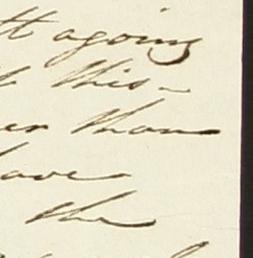 agoing
this
than
have
the